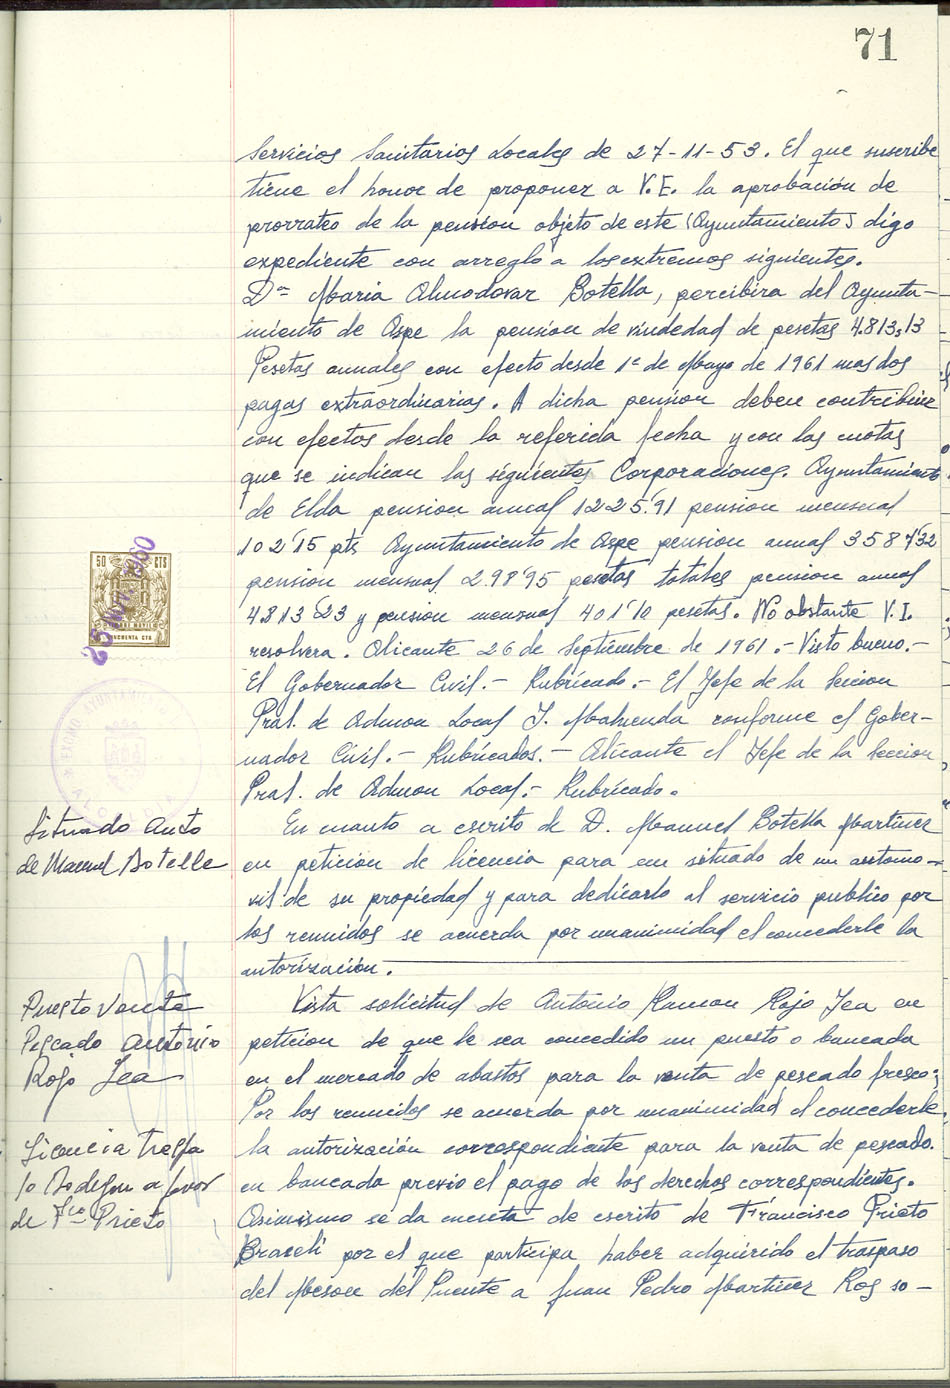 71
Servicios Sanitarios Locales de 27-11-53. El que suscribe
tiene el honor de proponer a V.E. la aprobación de
prorrateo de la pension objeto de este (Ayuntamiento) digo
expediente con arreglo a los extremos siguientes.
Dª Maria Almodovar Botella, percibira del Ayunta-
miento de Aspe la pension de viudedad de pesetas 4.813,13
Pesetas anuales con efecto desde 1º de Mayo de 1961 mas dos
pagas extraordinarias. A dicha pensión deben contribuir
con efectos desde la referida fecha y con las cuotas
que se indican las siguientes Corporaciones. Ayuntamiento
de Elda pension anual 1225.91 pension mensual
102'15 pts Ayuntamiento de Aspe pension anual 3587'32
pension mensual 298'95 pesetas totales pension anual
4813'23 y pension mensual 401'10 pesetas. No obstante V.I.
resolvera. Alicante 26 de Septiembre de 1961.- Visto bueno.-
El Gobernador Civil.- Rubricado.- El Jefe de la Seccion
Pral. de Admon Local J. conforme el Gober-
nador Civil.- Rubricados.- Alicante el Jefe de la Seccion
Pral. de Admon Local.- Rubricado.
En cuanto a escrito de D. Manuel Botella Martinez
en peticion de licencia para un situado de un automo-
vil de su propiedad y para dedicarlo al servicio publico por
los reunidos se acuerda por unanimidad el concederle la
autorización.
Vista solicitud de Antonio Ramon Rojo Jea en
peticion de que le sea concedido un puesto o bancada
en el mercado de abastos para la venta de pescado fresco;
Por los reunidos se acuerda por unanimidad el concederle
la autorización correspondiente para la venta de pescado.
en bancada previo el pago de los derechos correspondientes.
Asimismo se da cuenta de escrito de Francisco Prieto
por el que participa haber adquirido el traspaso
del Meson del Puente a Juan Pedro Martinez Ros so-
50 CTS
25 NOV. 1960
CINCUENTA CTS
EXCMO. AYUNTAMIENTO
ALCALDIA
Situado Auto
de Manuel Botella
Puesto Venta
Pescado Antonio
Rojo Jea
Licencia traspa
so Bodegon a favor
de Fco Prieto